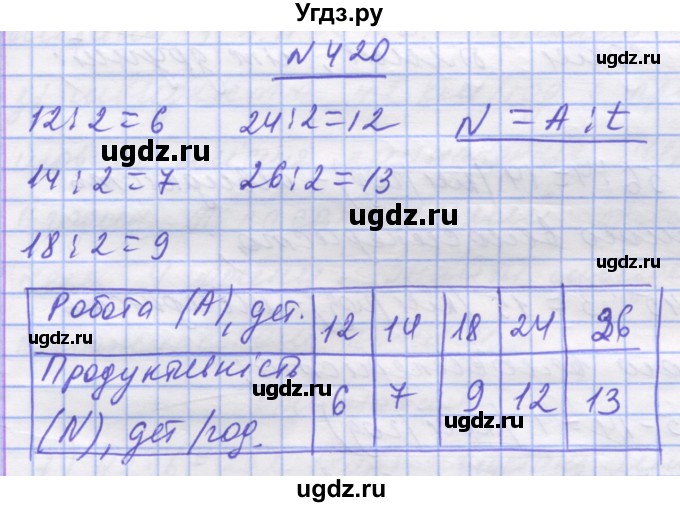 Угдз.ру
N 420
12 : 2 = 6 24 : 2 = 12 N = A : t
14 : 2 = 7 26 : 2 = 13
18 : 2 = 9
Робота (А), дет. 12 14 18 24 26
Продуктивність (N), дет/год. 6 7 9 12 13
ugdz.ru
ugdz.ru
ugdz.ru
ugdz.ru
ugdz.ru
ugdz.ru
ugdz.ru
ugdz.ru